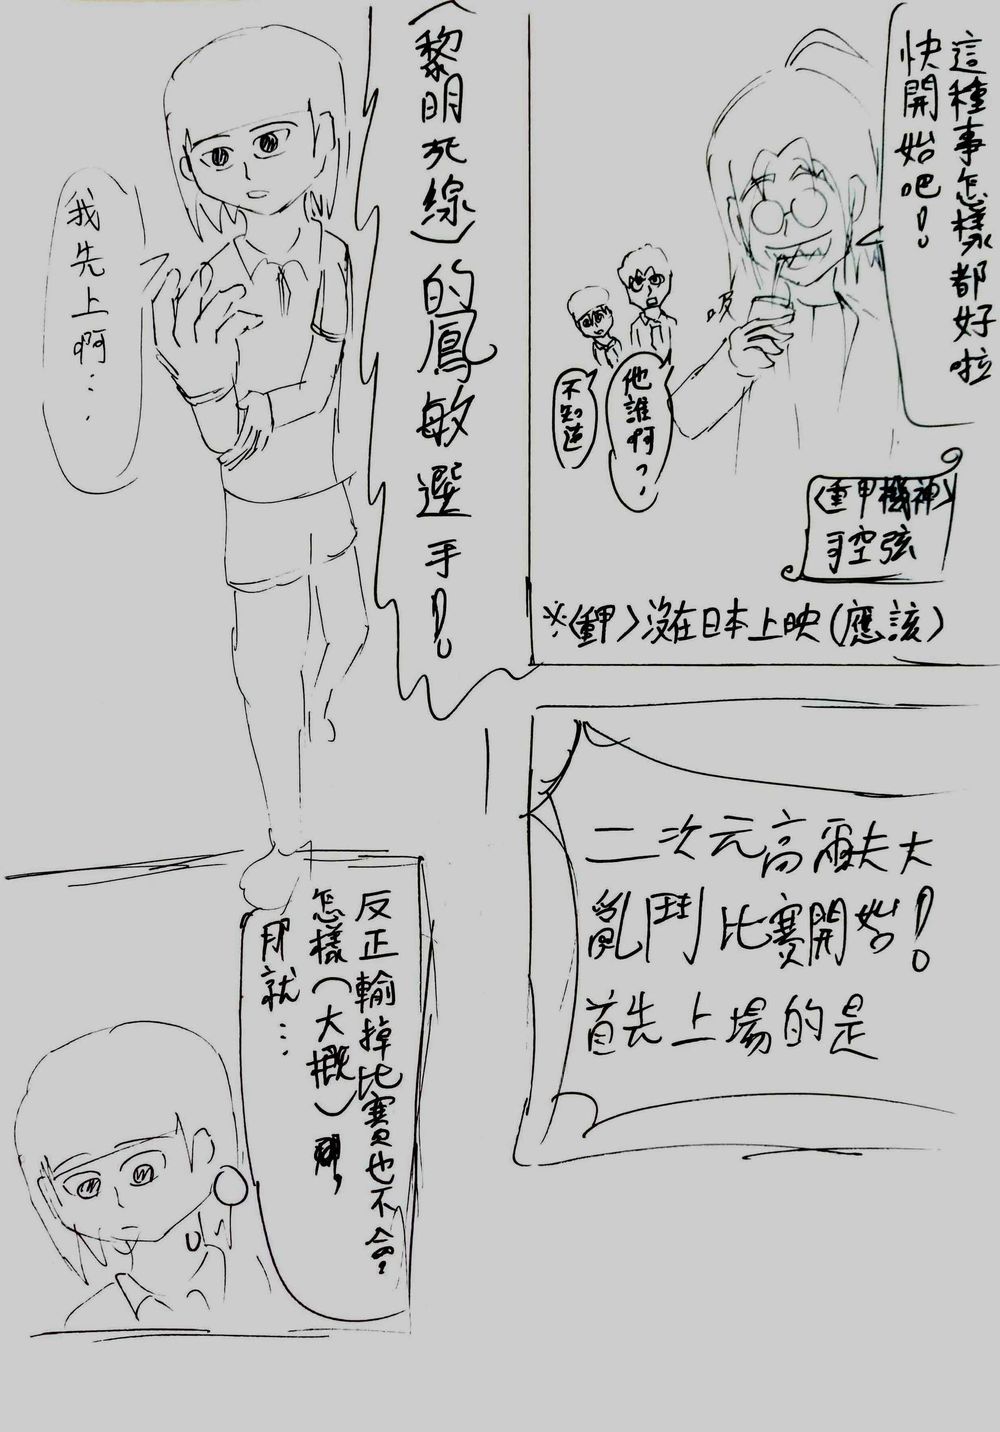 這種事怎樣都好啦
快開始吧！
吸
他誰啊？
不知道
〈重甲機神〉
司空弦
※〈重甲〉沒在日本上映（應該）
二次元高爾夫大
亂鬥比賽開始！
首先上場的是
（黎明死線）的鳳敏選手！
我先上啊…
反正輸掉比賽也不會
怎樣（大概），
那就…